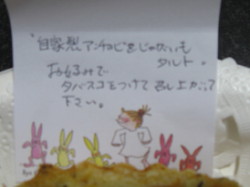 "自家製アンチョビとじゃがいも
タルト"
お好みで
タバスコをつけて召し上がって
下さい。